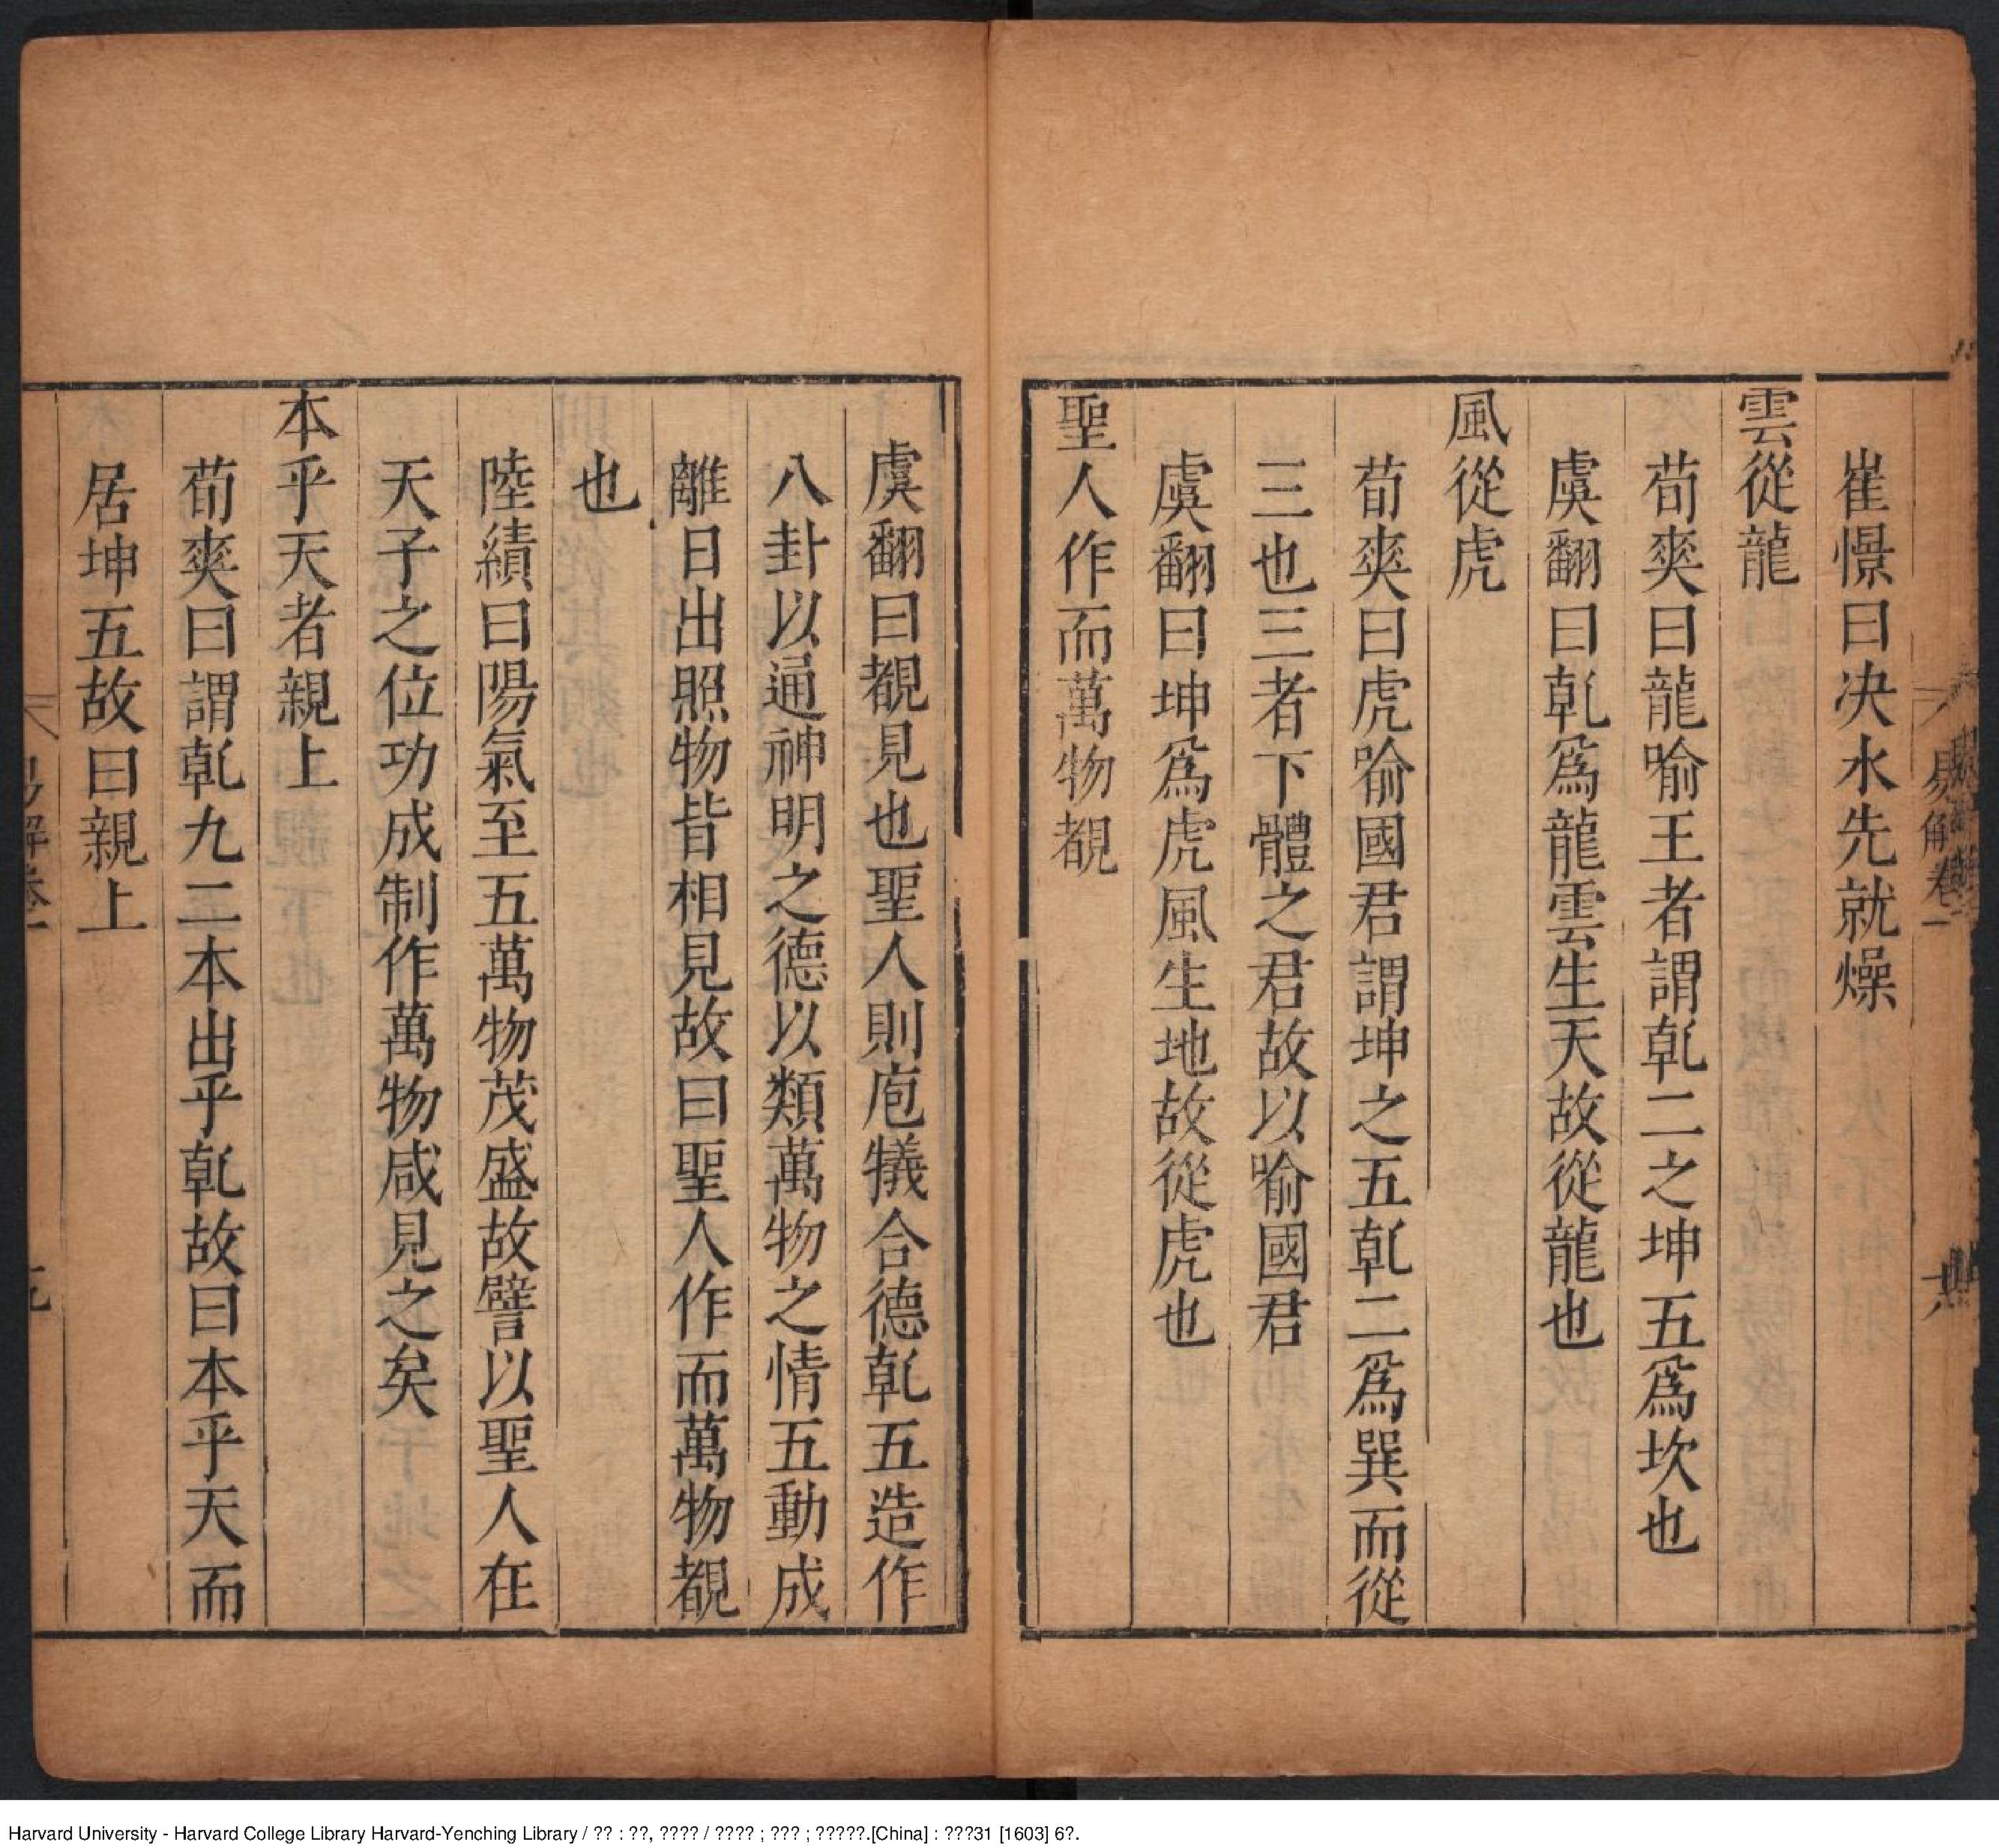 崔憬曰决水先就燥
雲從龍
荀爽曰龍喻王者謂乹二之坤五爲坎也
虞翻曰乹爲龍雲生天故從龍也
風從虎
荀爽曰虎喻國君謂坤之五乹二爲巽而從
三也三者下體之君故以喻國君
虞翻曰坤爲虎風生地故從虎也
聖人作而萬物覩
虞翻曰覩見也聖人則庖犧合德乹五造作
八卦以通神明之德以類萬物之情五動成
離日出照物皆相見故曰聖人作而萬物覩
也
陸績曰陽氣至五萬物茂盛故譬以聖人在
天子之位功成制作萬物咸見之矣
本乎天者親上
荀爽曰謂乹九二本出乎乹故曰本乎天而
居坤五故曰親上
易解卷一
Harvard University - Harvard College Library Harvard-Yenching Library / ?? : ??, ???? / ???? ; ??? ; ?????.[China] : ???31 [1603] 6?.